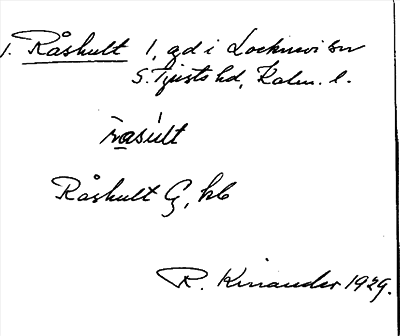 1. Råshult 1, gd i Locknevi sn
S. Tjusts hd, Kalm. l.
råsult
Råshult G, kb
R. Kinander 1929.